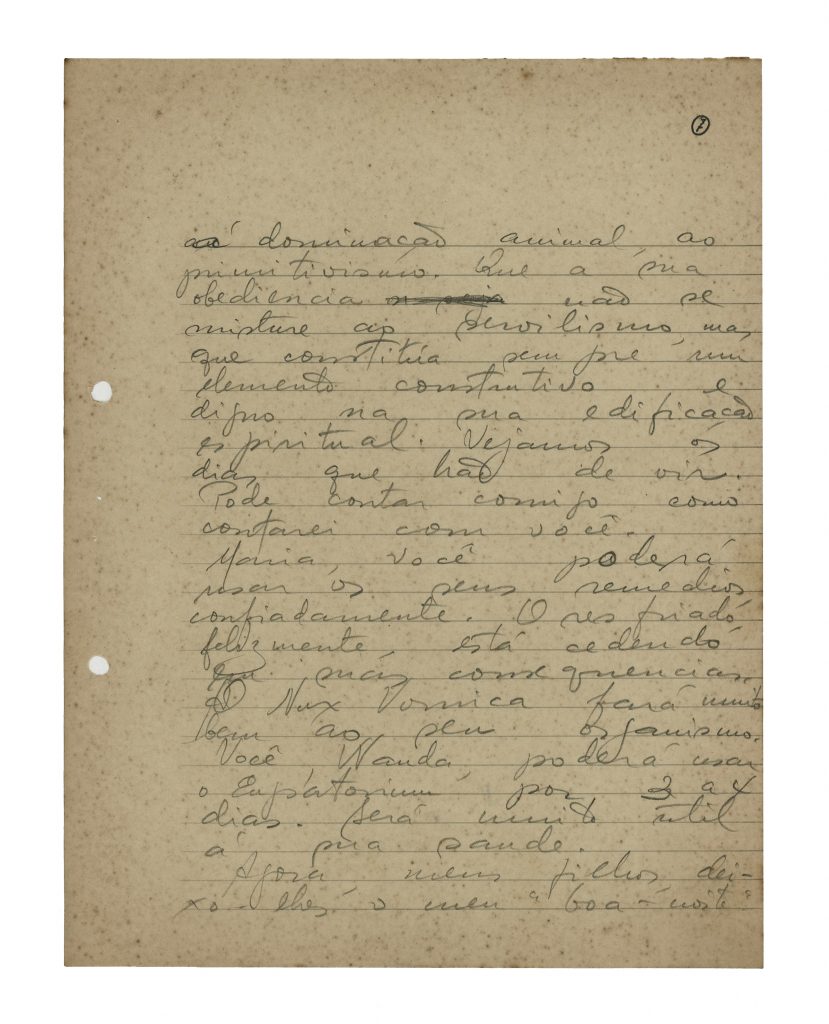 7
á dominacão animal, ao
primitivismo. Que a sua
obediencia não se
misture ao servilismo, mas
que constitúa sempre um
elemento construtivo e
digno na sua edificacão
espiritual. Vejamos os
dias que hão de vir.
Póde contar comigo como
contarei com você.
Maria, você poderá
usar os seus remedios
confiadamente. O resfriado
felizmente, está cedendo
sem más consequencias.
O Nux Vomica fará muito
bem ao seu organismo.
Você Wanda, poderá usar
o Eupatorium por 3 a 4
dias. Será muito util
á sua saude.
Agora meus filhos dei-
xo-lhes o meu "boa-noite"